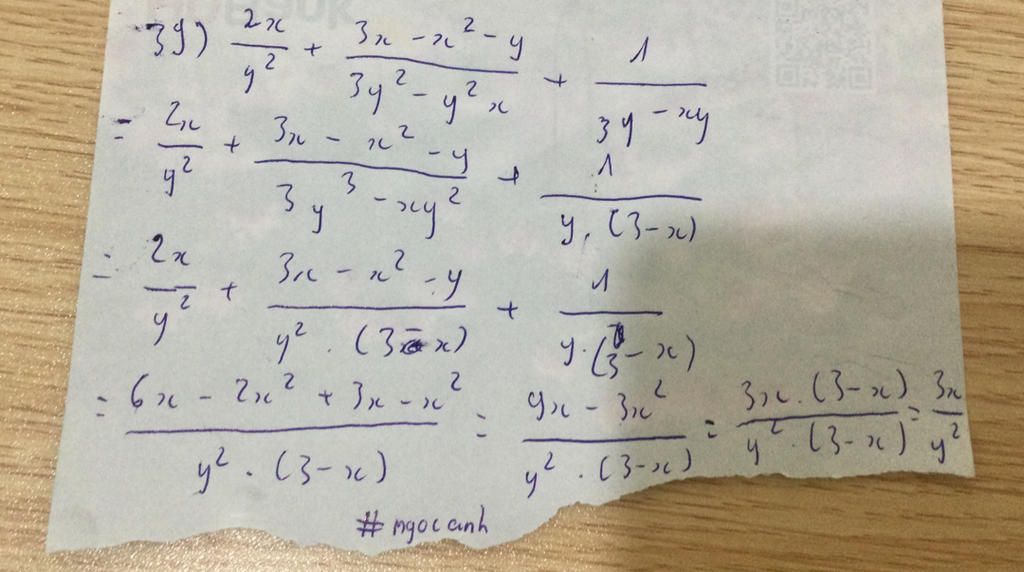 39) 2x/y² + (3x - x² - y)/(3y² - y²x) + 1/(3y - xy)
= 2x/y² + (3x - x² - y)/(3y³ - xy²) + 1/(y.(3-x))
= 2x/y² + (3x - x² - y)/(y².(3-x)) + 1/(y.(3-x))
= (6x - 2x² + 3x - x²)/(y².(3-x)) = (9x - 3x²)/(y².(3-x)) = (3x.(3-x))/(y².(3-x)) = 3x/y²
#ngocanh